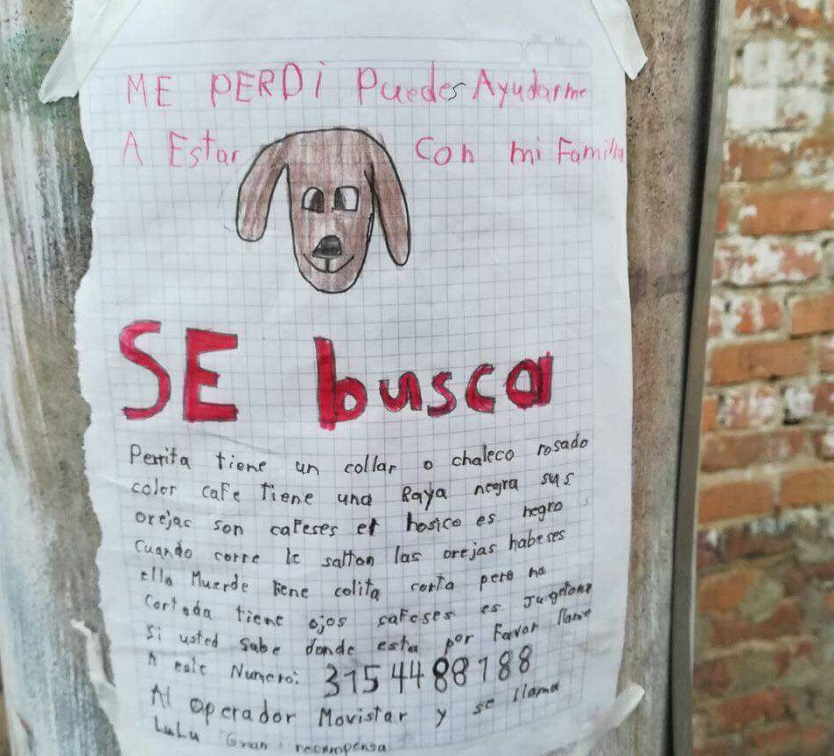 ME PERDi Puedes Ayudarme
A Estar con mi Familia
SE busca
Perrita tiene un collar o chaleco rosado
color cafe Tiene una Raya negra sus
orejas son cafeses el hosico es negro
cuando corre le salton las orejas habeses
ella Muerde tiene colita corta pero no
cortada tiene ojos cafeses es Jugetona
si usted sabe donde esta por Favor llame
A este Numero: 315 44 88188
Al operador Movistar y se llama
LuLu Gran recompensa